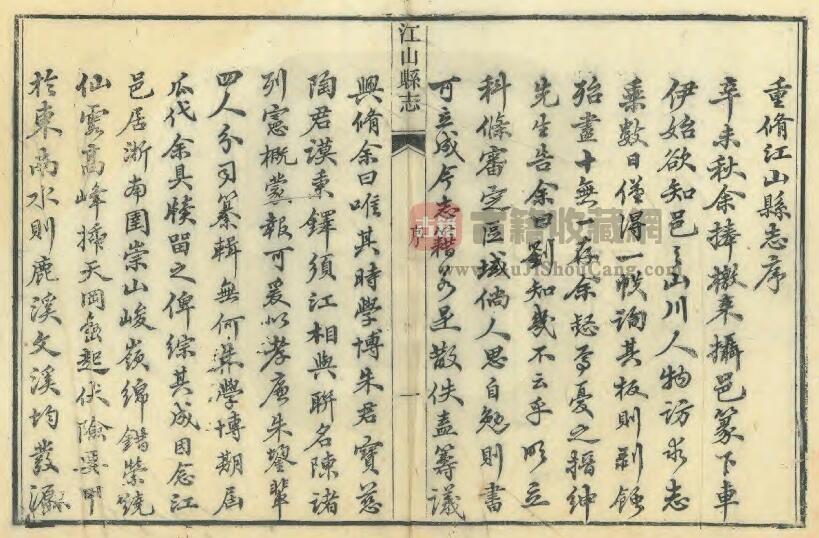 重脩江山縣志序
辛未秋余捧檄來攝邑篆下車
伊始欲知邑之山川人物訪求志
乘數日僅得一帙詢其板則剥蝕
殆盡十無一存余愀焉憂之搢紳
先生告余曰劉知幾不云乎明立
科條審定區域倘人思自勉則書
可立成今志稽若是散佚盍籌議
江山縣志
序
一
興脩余曰唯其時學博朱君寶慈
陶君謨秉鐸須江相與聯名陳諸
列憲概蒙報可爰以孝廉朱鑾輩
四人分司纂輯無何龔學博期屆
瓜代余具牘留之俾綜其成因念江
邑居浙南圉崇山峻嶺綿錯縈繞
仙霞高峰插天岡巒起伏險要甲
於東南水則鹿溪文溪均發源
古籍收藏網
www.GuJiShouCang.com